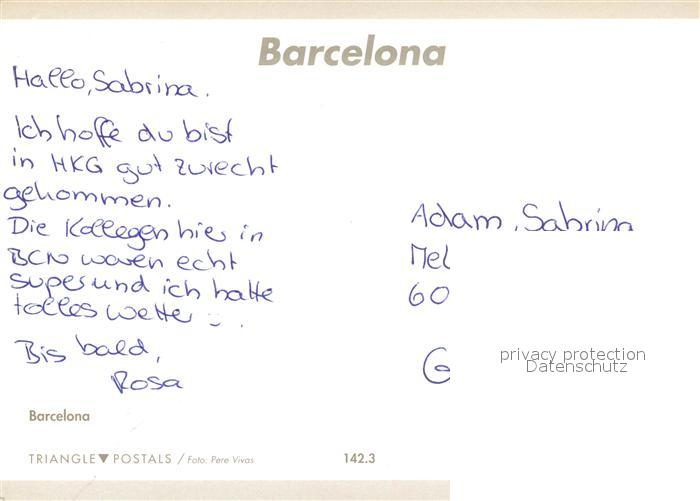 Barcelona
Hallo, Sabrina.
Ich hoffe du bist
in HKG gut zurecht
gekommen.
Die Kollegen hier in
BCN waren echt
super und ich hatte
tolles Wetter
Bis bald,
Rosa
Adam, Sabrina
Mel
60
G
privacy protection
Datenschutz
Barcelona
TRIANGLE▼POSTALS / Foto: Pere Vivas
142.3